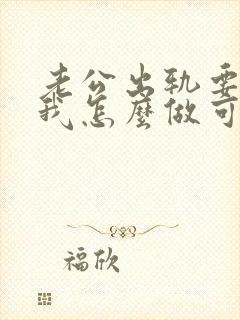 老公出轨要
我怎麼做可
福欣